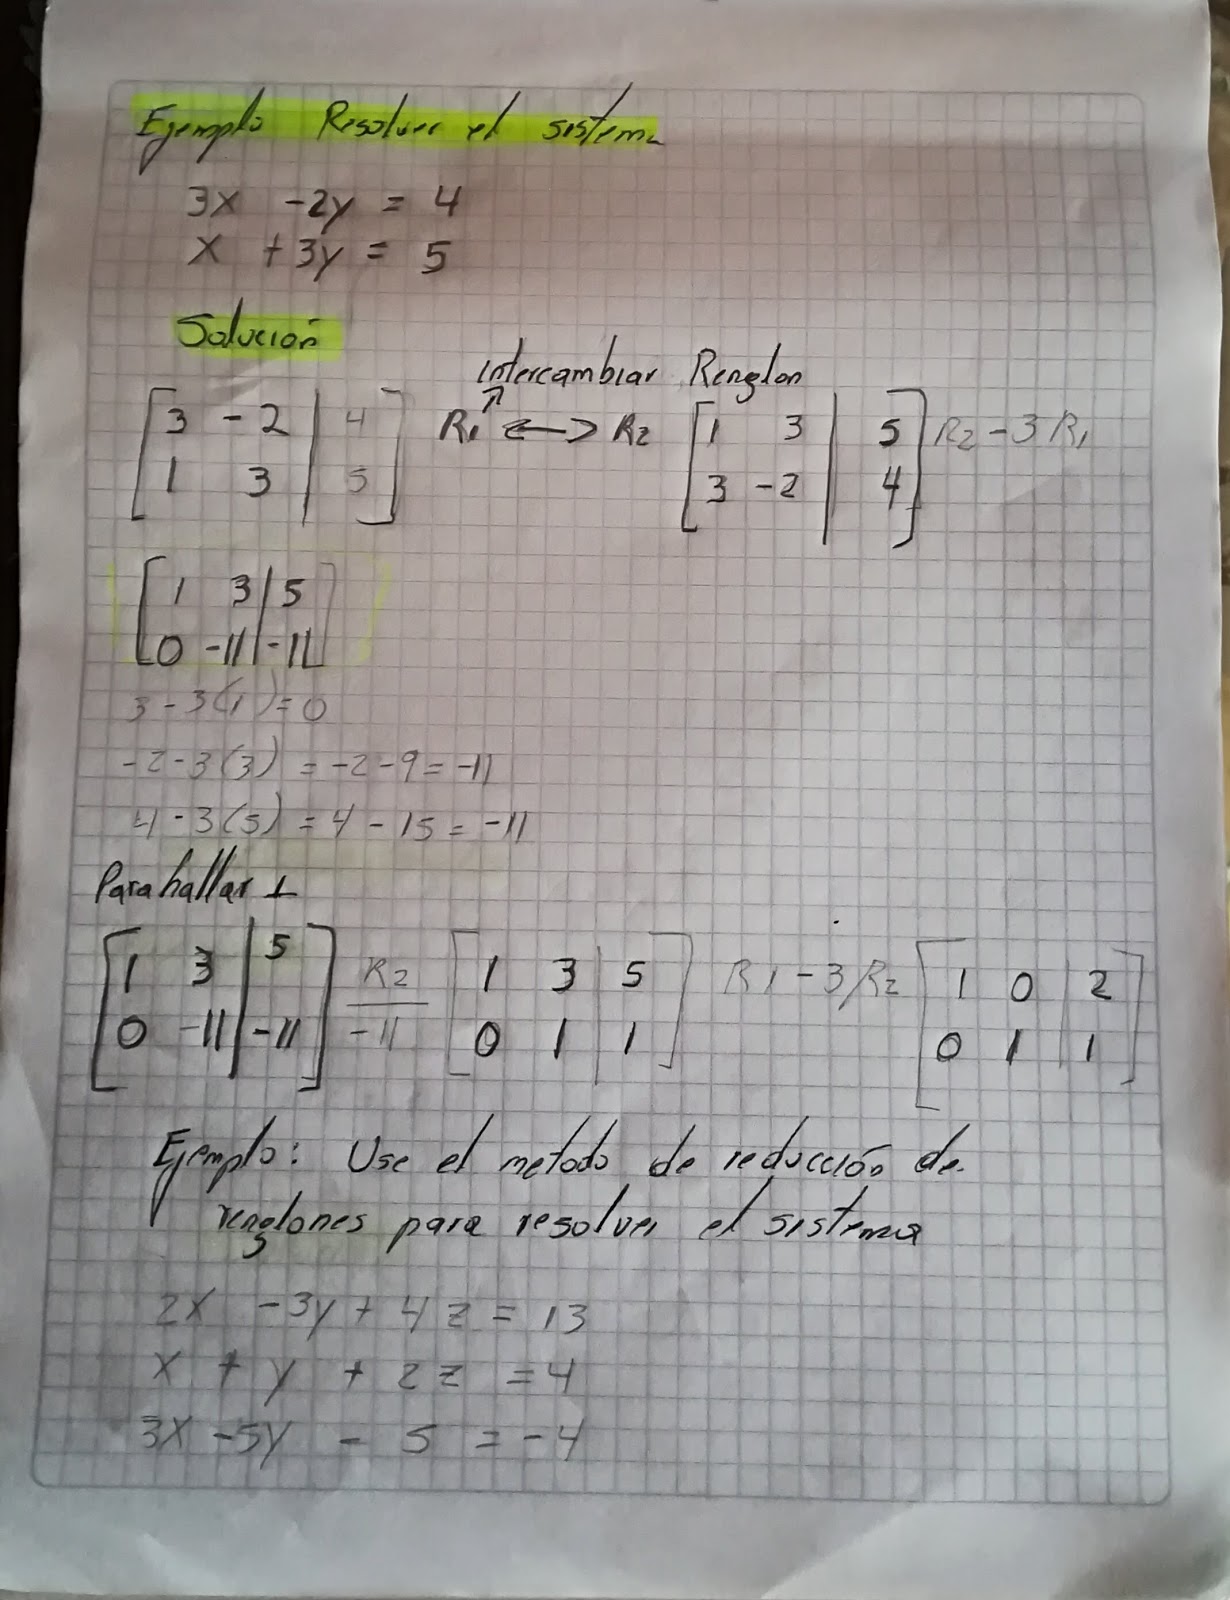 Ejemplo Resolver el sistema
3x -2y = 4
x +3y = 5
Solución
intercambiar Renglon
[3 -2 | 4] R1 ↔ R2 [1 3 | 5] R2 - 3R1
[1 3 | 5] [3 -2 | 4]
[1 3 | 5]
[0 -11 | -11]
3 - 3(1) = 0
-2 - 3(3) = -2 - 9 = -11
4 - 3(5) = 4 - 15 = -11
Para hallar 1
[1 3 | 5] R2/-11 [1 3 | 5] R1 - 3R2 [1 0 | 2]
[0 -11 | -11] [0 1 | 1] [0 1 | 1]
Ejemplo: Use el metodo de reducción de
renglones para resolver el sistema
2x -3y + 4z = 13
x + y + 2z = 4
3x -5y - 5 = -4